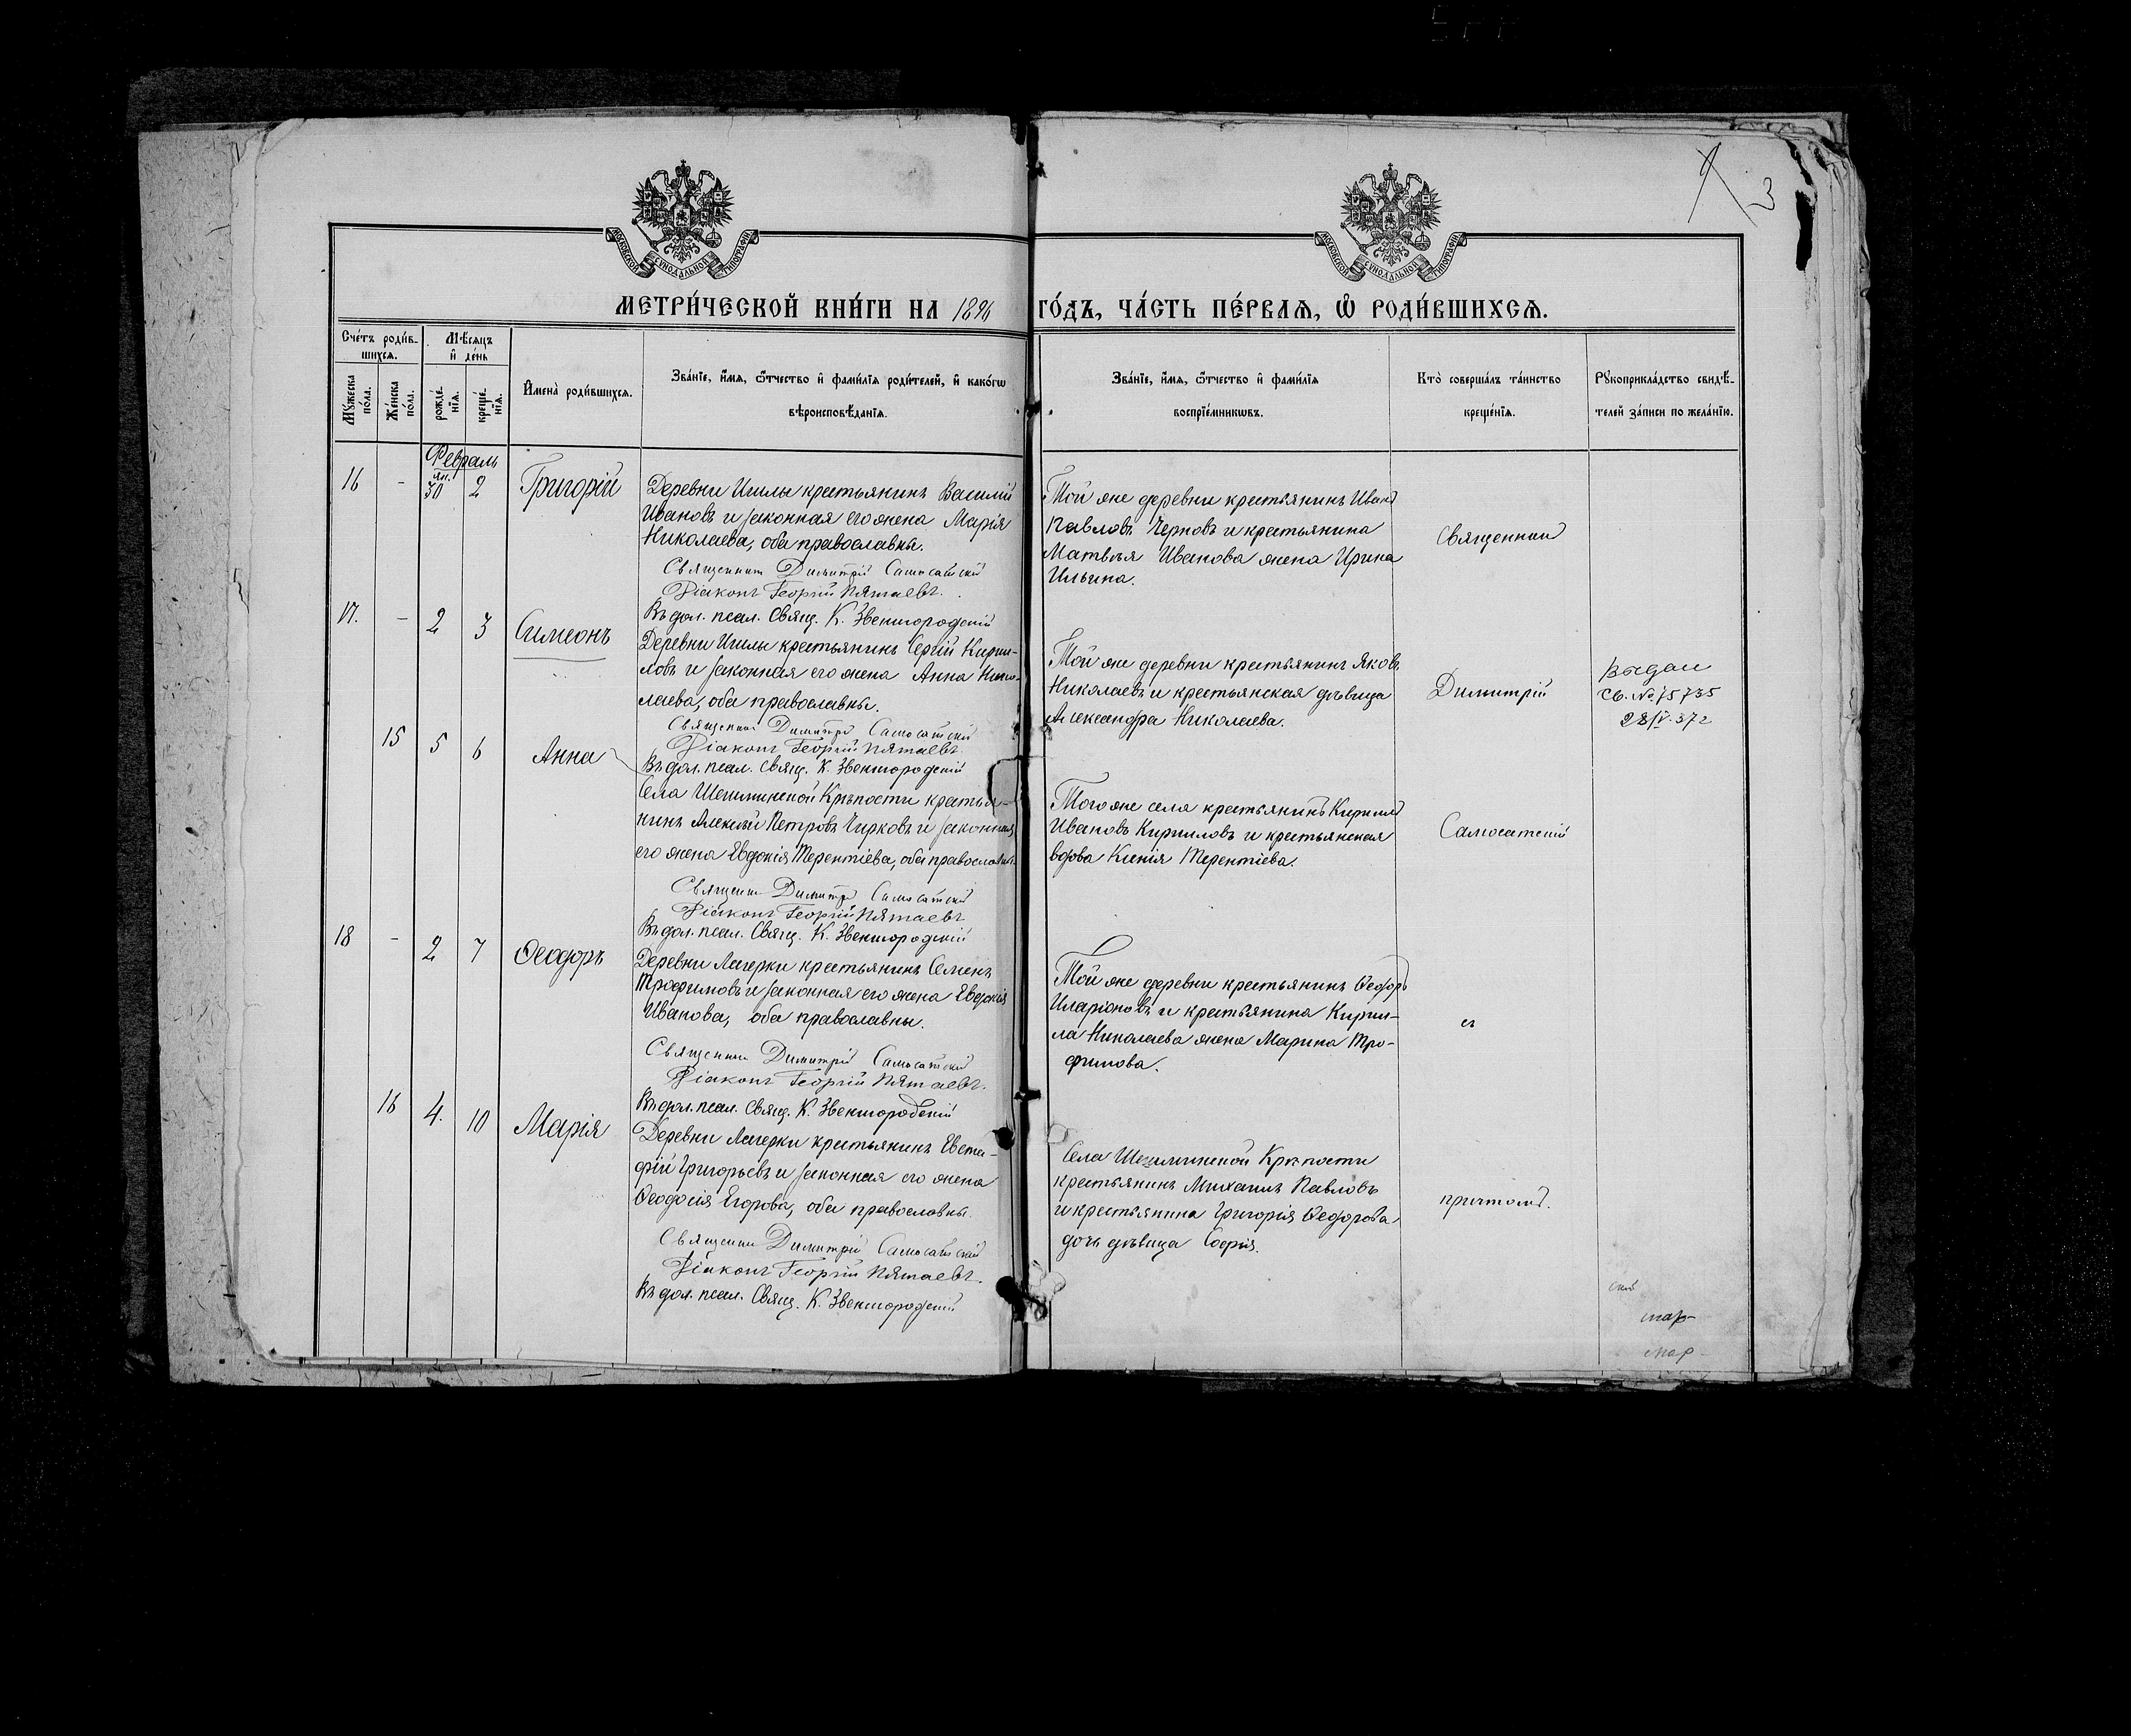 9 3
МОСКОВСКОЙ СУНОДАЛЬНОЙ ТИПОГРАФІИ
МОСКОВСКОЙ СУНОДАЛЬНОЙ ТИПОГРАФІИ
МЕТРИ́ЧЕСКОЙ КНИ́ГИ НА 1896 ГО́ДЪ, ЧА́СТЬ ПЕ́РВАЯ, Ѡ РОДИ́ВШИХСЯ.
Сче́тъ роди́вшихся.
Мѣ́сяцъ и де́нь
Мꙋ́жеска по́ла.
Же́нска по́ла.
рожде́нїя.
креще́нїя.
Имена̀ роди́вшихся.
Зва́нїе, и́мя, ѻ́тчество и фами́лїя роди́телей, и како́гѡ вѣроисповѣ́данїя.
Зва́нїе, и́мя, ѻ́тчество и фами́лїя воспрїе́мникѡвъ.
Кто̀ соверша́лъ та́инство креще́нїя.
Рꙋкоприкла́дство свидѣ́телей за́писи по жела́нїю.
Февраль
16 - ян. 30 2 Григорій
Деревни Ишлы крестьянинъ Василій
Ивановъ и законная его жена Марія
Николаева, оба православны.
Священник Димитрій Самосатскій
Діаконъ Георгій Пятаевъ.
Въ дол. псал. Свящ. К. Звенигородскій
Той же деревни крестьянинъ Иванъ
Павловъ Черновъ и крестьянина
Матвѣя Иванова жена Ирина
Ильина.
Священник
17. - 2 3 Симеонъ
Деревни Ишлы крестьянинъ Сергій Кирил-
ловъ и законная его жена Анна Нико-
лаева, оба православны.
Священник Димитрій Самосатскій
Діаконъ Георгій Пятаевъ.
Въ дол. псал. Свящ. К. Звенигородскій
Той же деревни крестьянинъ Яковъ
Николаевъ и крестьянская дѣвица
Александра Николаева.
Димитрій
Выдан
Св. № 75735
28/IV.37г
15 5 6 Анна
Села Шешминской Крѣпости крестья-
нинъ Алексѣй Петровъ Чирковъ и законная
его жена Евдокія Терентіева, оба православны.
Священник Димитрій Самосатскій
Діаконъ Георгій Пятаевъ
Въ дол. псал. Свящ. К. Звенигородскій
Того же села крестьянинъ Кириллъ
Ивановъ Кирилловъ и крестьянская
вдова Ксенія Терентіева.
Самосатскій
18 - 2 7 Ѳеодоръ
Деревни Лагерки крестьянинъ Семенъ
Трофимовъ и законная его жена Евдокія
Иванова, оба православны.
Священник Димитрій Самосатскій
Діаконъ Георгій Пятаевъ.
Въ дол. псал. Свящ. К. Звенигородскій
Той же деревни крестьянинъ Ѳедоръ
Иларіоновъ и крестьянина Кирил-
ла Николаева жена Марина Тро-
фимова.
съ
16 4. 10 Марія
Деревни Лагерки крестьянинъ Евста-
фій Григорьевъ и законная его жена
Ѳеодосія Егорова, оба православны.
Священник Димитрій Самосатскій
Діаконъ Георгій Пятаевъ.
Въ дол. псал. Свящ. К. Звенигородскій
Села Шешминской Крѣпости
крестьянинъ Михаилъ Павловъ
и крестьянина Григорія Ѳедорова
дочь дѣвица Софія.
причтомъ.
мар-
мар-